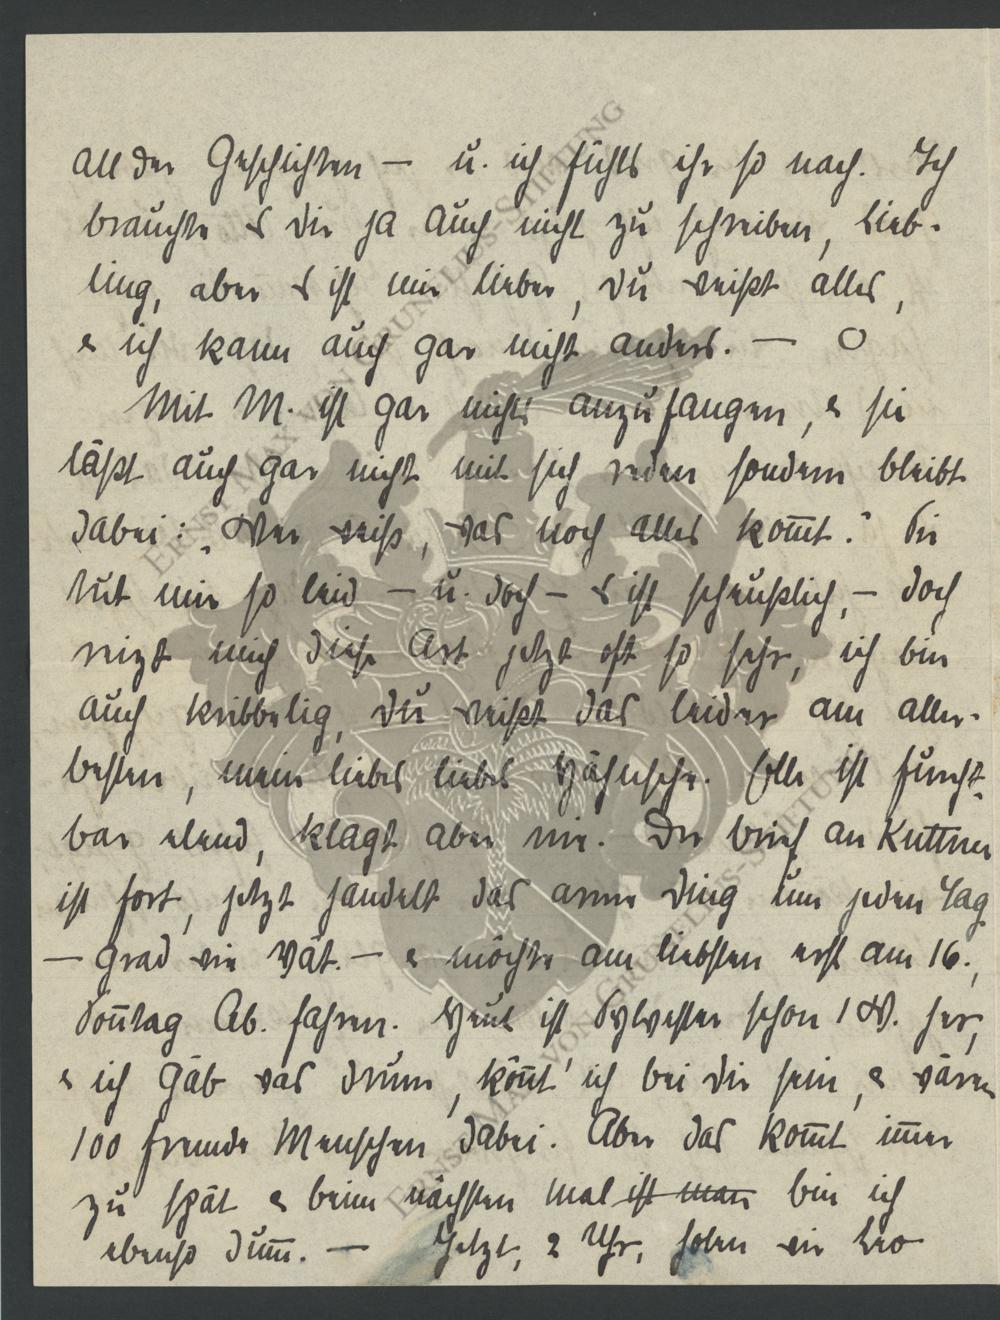 all der Geschichten — u. ich fühls ihr so nach. Ich
brauchte es dir ja auch nicht zu schreiben, Lieb-
ling, aber es ist mir lieber, du weißt alles,
& ich kann auch gar nicht anders. — O
Mit M. ist gar nichts anzufangen, & sie
läßt auch gar nicht mit sich reden sondern bleibt
dabei: „Wer weiß, was noch alles kom̅t." Sie
tut mir so leid — u. doch — es ist scheußlich, — doch
reizt mich diese Art jetzt oft so sehr, ich bin
auch kribbelig, du weißt das leider am aller-
besten, mein liebes liebes Hähnsche. Olle ist furcht-
bar elend, klagt aber nie. Der Brief an Kuttner
ist fort, jetzt handelt das arme Ding um jeden Tag
— grad wie Vät. — & möchte am liebsten erst am 16.,
Son̅tag Ab. fahren. Heut ist Sylvester schon 1 W. her,
& ich gäb was drum, kön̅t' ich bei dir sein, & wären
100 fremde Menschen dabei. Aber das kom̅t im̅er
zu spät & beim nächsten mal ist man bin ich
ebenso dum̅. — Jetzt, 2 Uhr, holen wir Leo
ERNST MAX VON GRUNELIUS-STIFTUNG
ERNST MAX VON GRUNELIUS-STIFTUNG